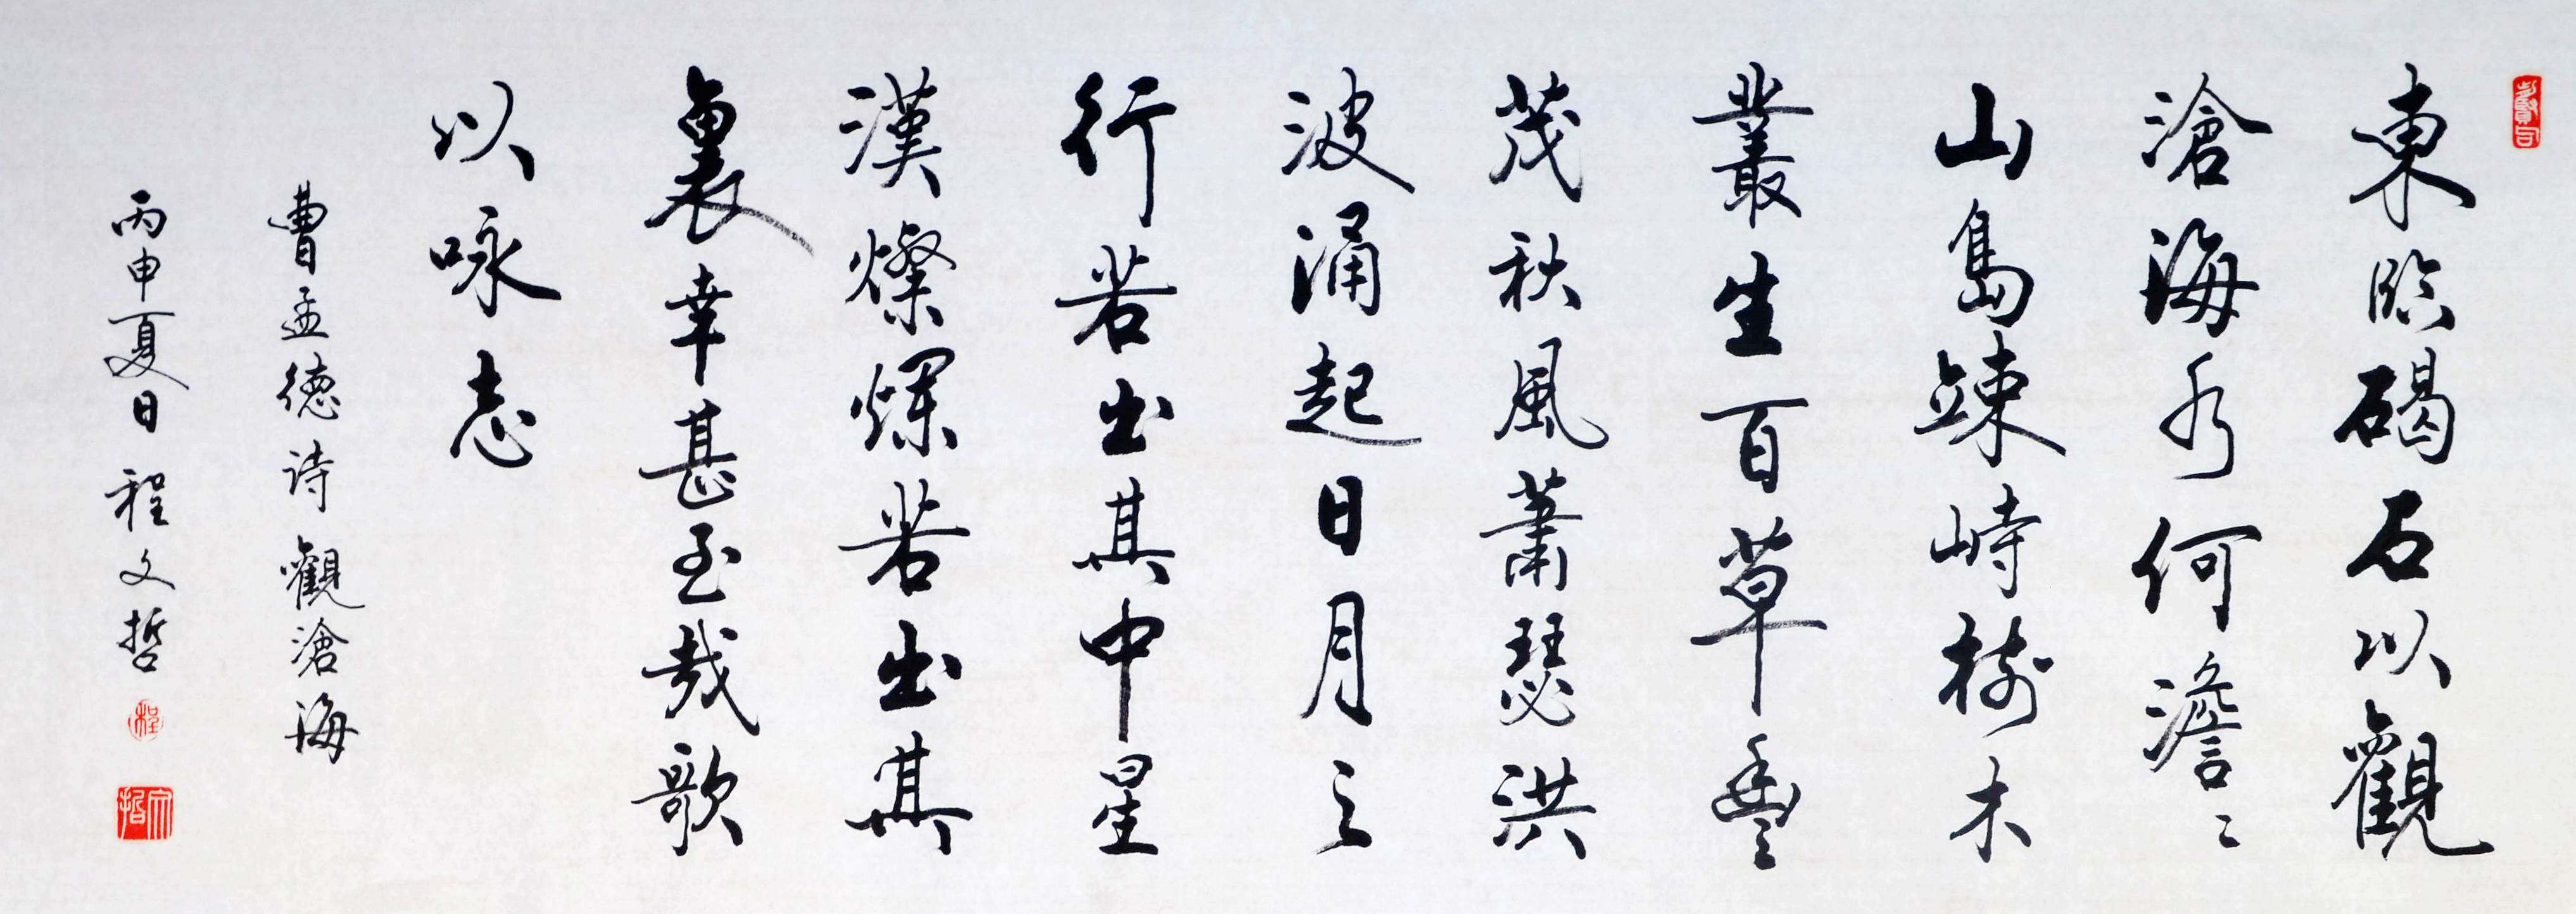 東臨碣石以觀
滄海水何澹〻
山島竦峙樹木
叢生百草豐
茂秋風蕭瑟洪
波涌起日月之
行若出其中星
漢燦爛若出其
裏幸甚至哉歌
以咏志
曹孟德诗觀滄海
丙申夏日 程文哲
程
文哲